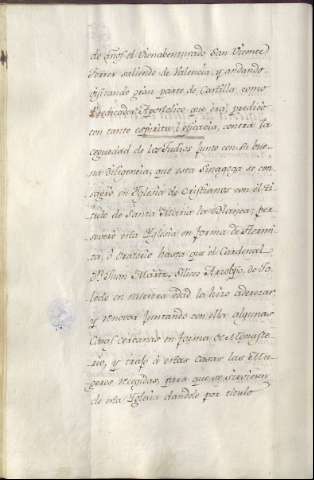 de años el Vienabenturado San Vicente
Ferrer saliendo de Valencia, y andando
visitando gran parte de Castilla, como
Predicador Apostolico que era, predicò
con tanto espiritu, i eficacia, contra la
ceguedad de los Judios junto con su bue-
na diligencia, que esta Sinagoga se con-
sagrò en Iglesia de Cristianos con el ti-
tulo de Santa Maria la Blanca; per-
severò esta Iglesia en forma de Hermi-
ta, ò oratorio hasta que el Cardenal
Dn Juan Martz. Siliceo Arzobpo. de To-
ledo en nuestra edad la hizo aderezar
y renovar juntando con ella algunas
Casas cercanas en forma de Monaste-
rio, y trajo à estas casas las Mu-
geres recogidas, para que se sirviesen
de esta Iglesia dandole por titulo